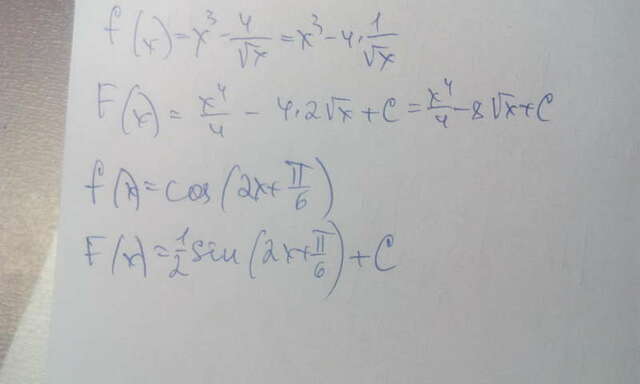 f(x) = x³ - 4/√x = x³ - 4 · 1/√x
F(x) = x⁴/4 - 4·2√x + C = x⁴/4 - 8√x + C
f(x) = cos(2x + π/6)
F(x) = 1/2 sin(2x + π/6) + C